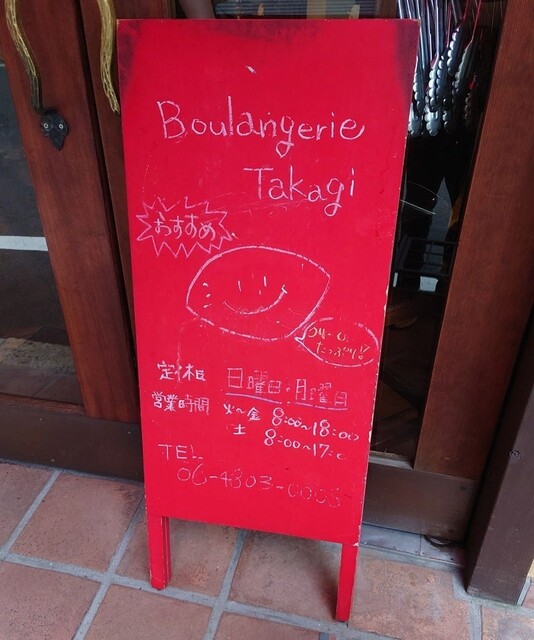 Boulangerie
Takagi
おすすめ
たっぷり!!
定休日 日曜日・月曜日
営業時間 火~金 8:00~18:00
土 8:00~17:00
TEL
06-4803-0005